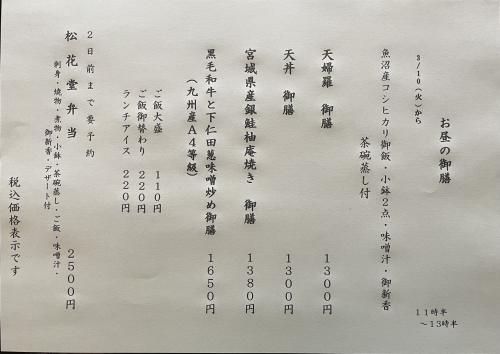 お昼の御膳
11時半
～13時半
3/10(火)から
魚沼産コシヒカリ御飯・小鉢2点・味噌汁・御新香
茶碗蒸し付
天婦羅 御膳 1300円
天丼 御膳 1300円
宮城県産銀鮭柚庵焼き 御膳 1380円
黒毛和牛と下仁田葱味噌炒め御膳 1650円
(九州産A4等級)
ご飯大盛 110円
ご飯御替わり 220円
ランチアイス 220円
2日前まで要予約
松花堂弁当 2500円
刺身・焼物・煮物・小鉢・茶碗蒸し・ご飯・味噌汁・
御新香・デザート付
税込価格表示です